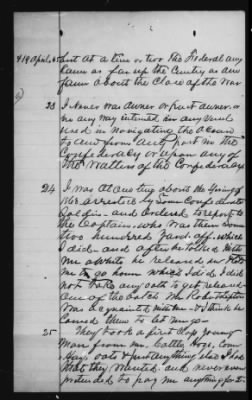 but at a time or two the Federal army
Came as far up the Country as our
farm about the Close of the War
23 I Never was owner or part owner, or
in any way interested in any Vessel
used in Navigating the Ocean
to and from any port in the
Confederacy or upon any of
the Waters of the Confederacy
24 I was at one time about the Spring of
arrested by some Confederate
and ordered to report to
the Captain, who was then some
two hundred yards off, which
I did and after he talked with
me a while he released me &
me to go home which I did. I did
not take any oath to get released
One of the
Was acquainted with me & I think he
Caused them to let me go
25 They took a first of young
Mare from me, Cattle, Hogs, Corn
Hay, oats & just any thing else I had
that they wanted and never even
pretended to pay me anything for it